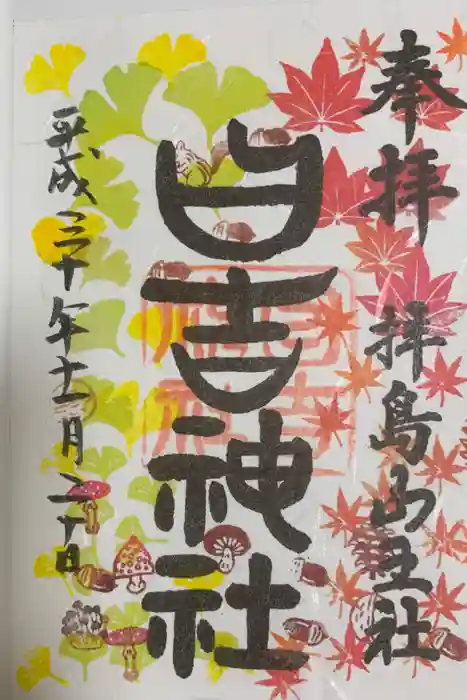 奉拝 拝島山王社
日吉神社
平成三十年十一月二十日